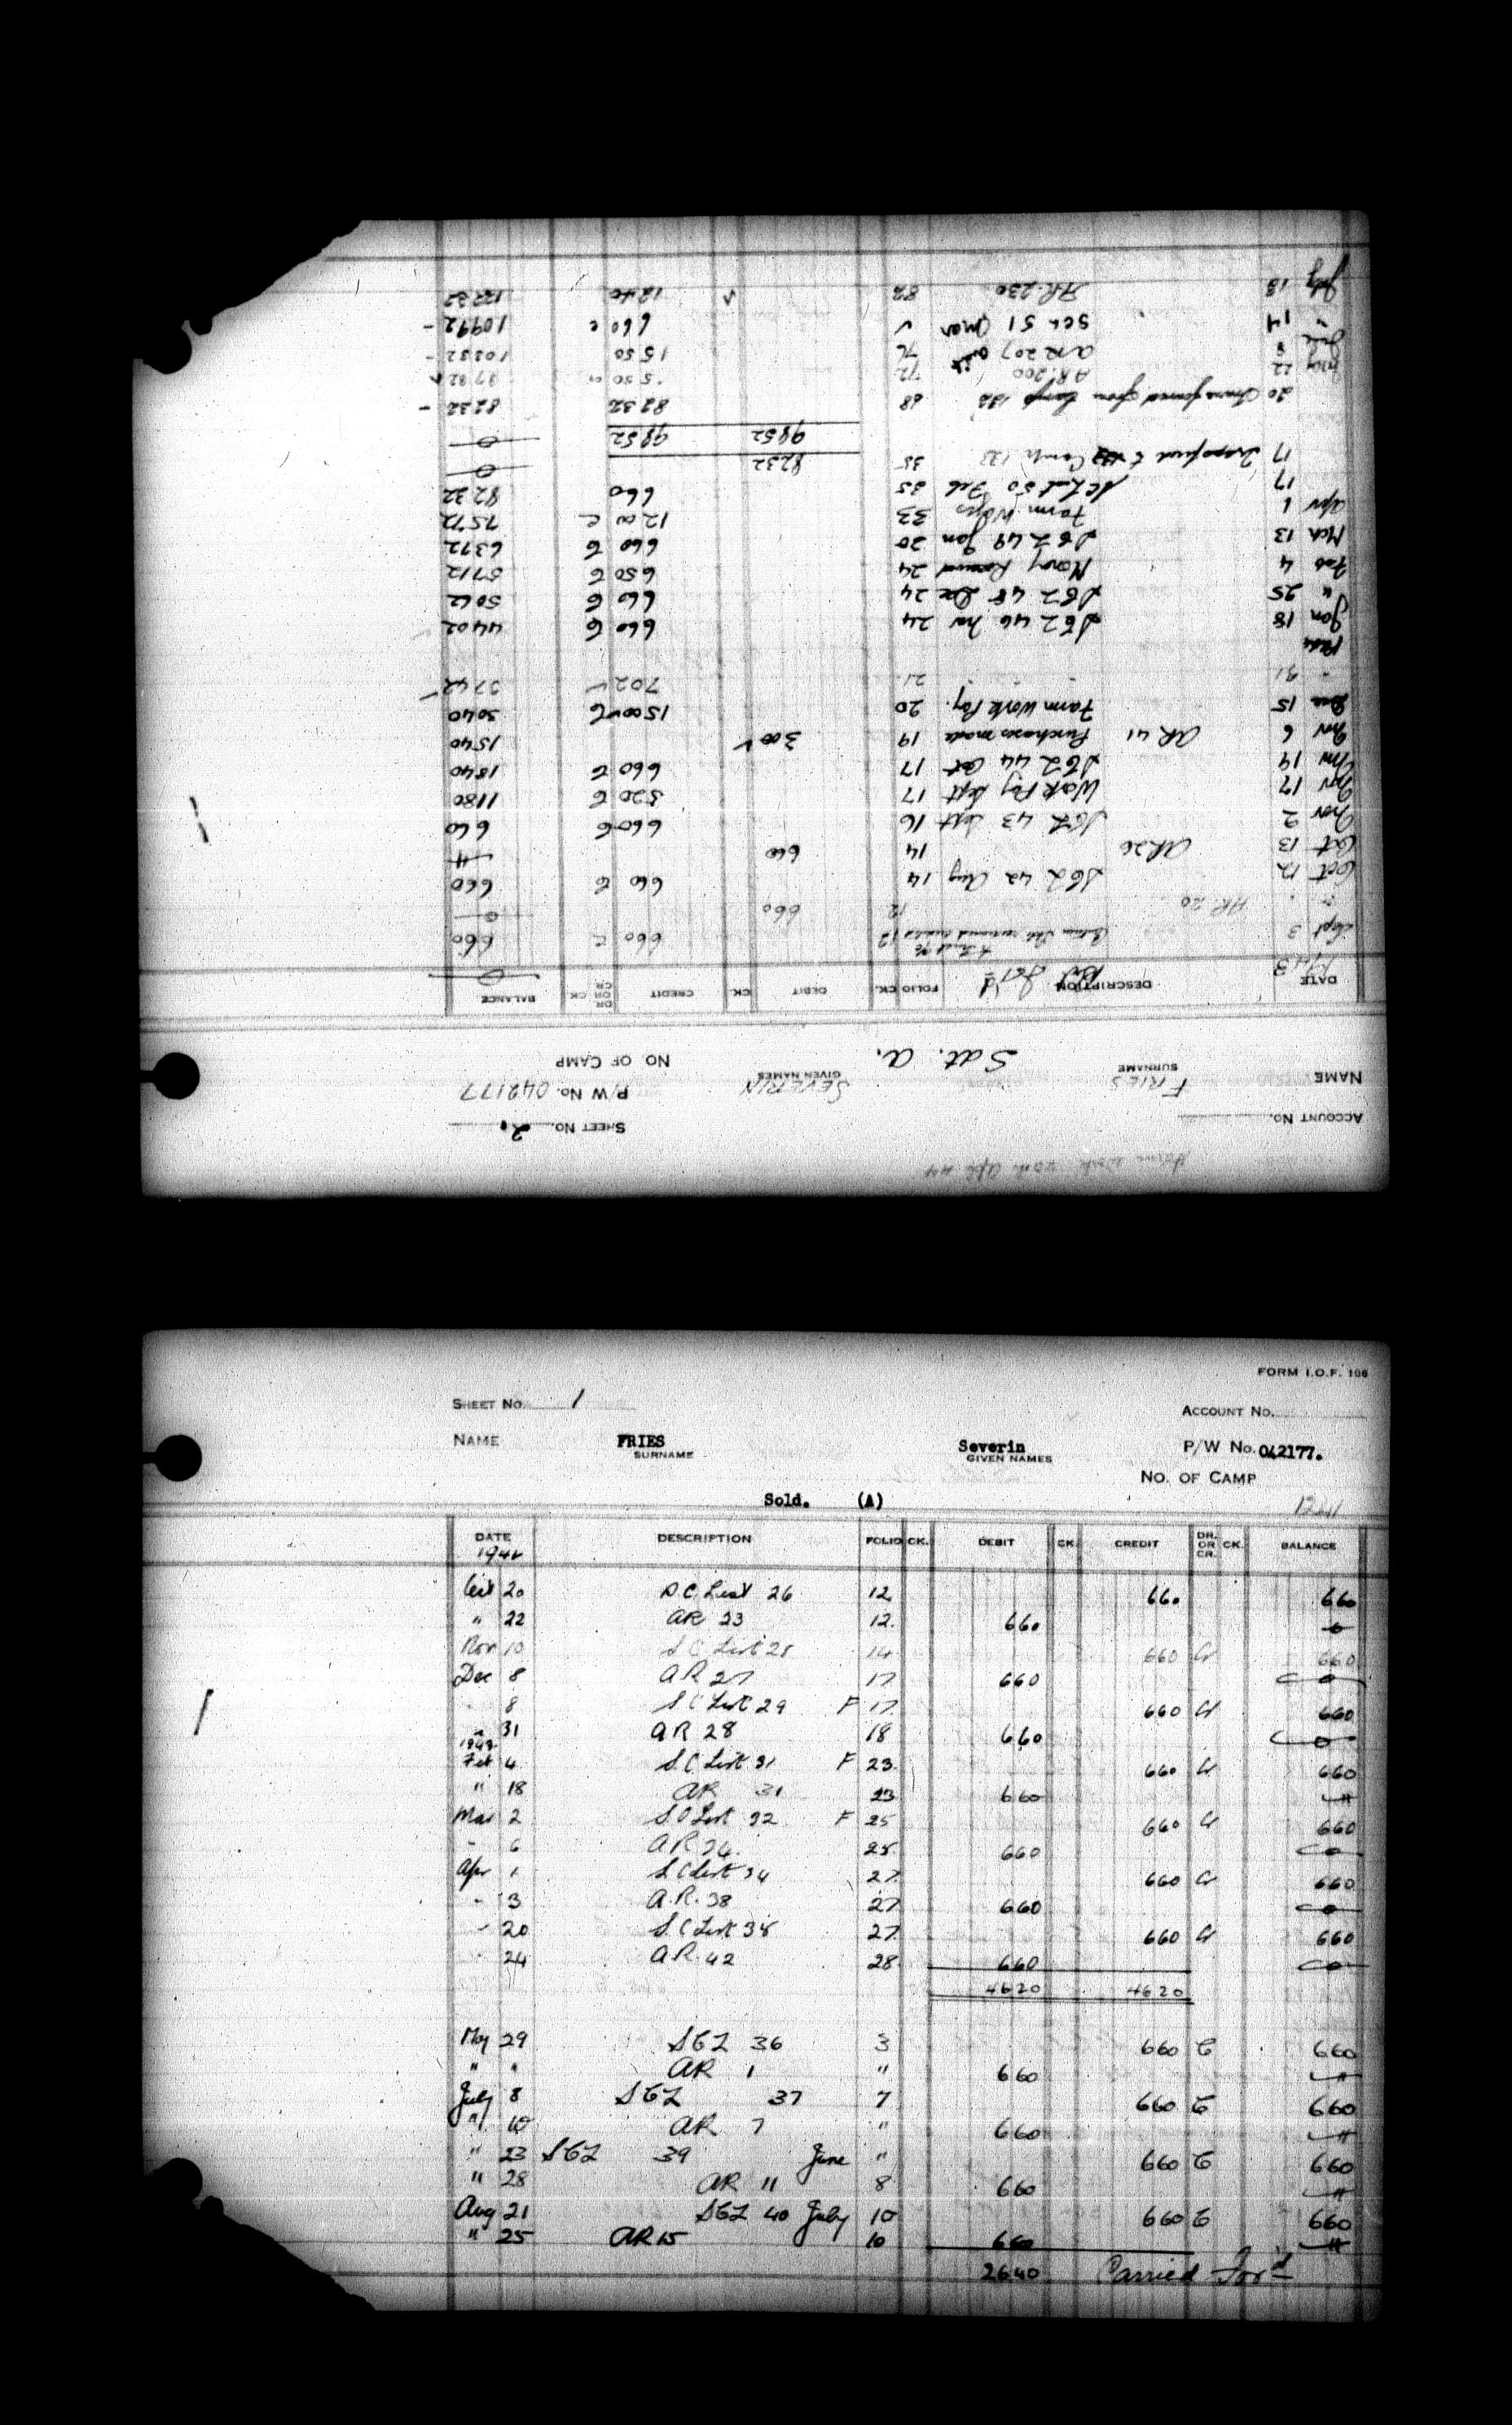 SHEET NO. 2.
ACCOUNT NO.
P/W No. 042177
NAME FRIES SEVERIN
SURNAME GIVEN NAMES
NO OF CAMP
Sdt. A.
DATE DESCRIPTION FOLIO CK. DEBIT CK. CREDIT DR. OR CR. CK. BALANCE
Sept 3 12 660 660
" " AR 20 12 660 0
Oct 12 SCL 42 Aug 14 660 C 660
Oct 13 AR 26 14 660
Nov 2 SCL 43 Sept 16 660 C 660
Nov 17 Work Pay Sept 17 520 C 1180
14 SCL 44 Oct 17 660 C 1840
6 AR 41 Purchases made 19 300 1540
Dec 15 Farm Work Pay. 20 1500 C 3040
" 31 " " 21 702 3742
Jan 18 SCL 46 Nov 24 660 C 4402
" 25 SCL 48 Dec 24 660 C 5062
Feb 4 24 650 C 5712
Mch 13 SCL 49 Jan 20 660 C 6372
Apr 1 Farm Wages 33 1200 C 7572
17 SC List 50 Feb 35 660 8232
17 Transferred to Camp 133 35 8232 0
9852 9852 0
20 Transferred from Camp 133 68 8232 8232
22 AR. 200 72 5 50
8 AR 207 76 15 50 10332
" 14 Sch 51 Mar 660 c 10992
July 18 AR. 230 82 1240 12232
FORM I.O.F. 106
SHEET NO. 1 ACCOUNT NO.
NAME FRIES Severin P/W No. 042177.
SURNAME GIVEN NAMES
NO. OF CAMP
Sold. (A)
DATE DESCRIPTION FOLIO CK. DEBIT CK. CREDIT DR. OR CR. CK. BALANCE
1942
Oct 20 S.C. List 26 12 660 660
" 22 AR 23 12. 660 0
Nov 10 S C List 28 14 660 Cr 660
Dec 8 AR 27 17 660 0
" 8 S C List 29 F 17 660 Cr 660
" 31 AR 28 18 660 0
1943
Feb 4 S C List 31 F 23. 660 Cr 660
" 18 AR 31 23 660
Mar 2 S C List 32 F 25 660 Cr 660
" 6 AR 34. 25. 660 0
Apr 1 S C List 34 27 660 Cr 660
" 3 A.R. 38 27 660 0
" 20 S. C List 35 27 660 Cr 660
" 24 A.R. 42 28 660 0
4620 4620
May 29 SCL 36 3 660 C 660
" " AR 1 " 660
July 8 SCL 37 7 660 C 660
" 10 AR 7 " 660
" 23 SCL 39 June " 660 C 660
" 28 AR 11 8 660
Aug 21 SCL 40 July 10 660 C 660
" 25 AR 15 10 660
2640 Carried For'd